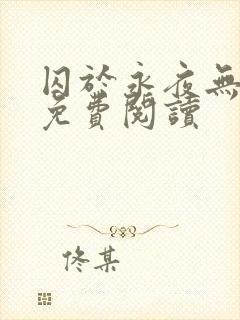 囚於永夜無
免費閱讀
佟某